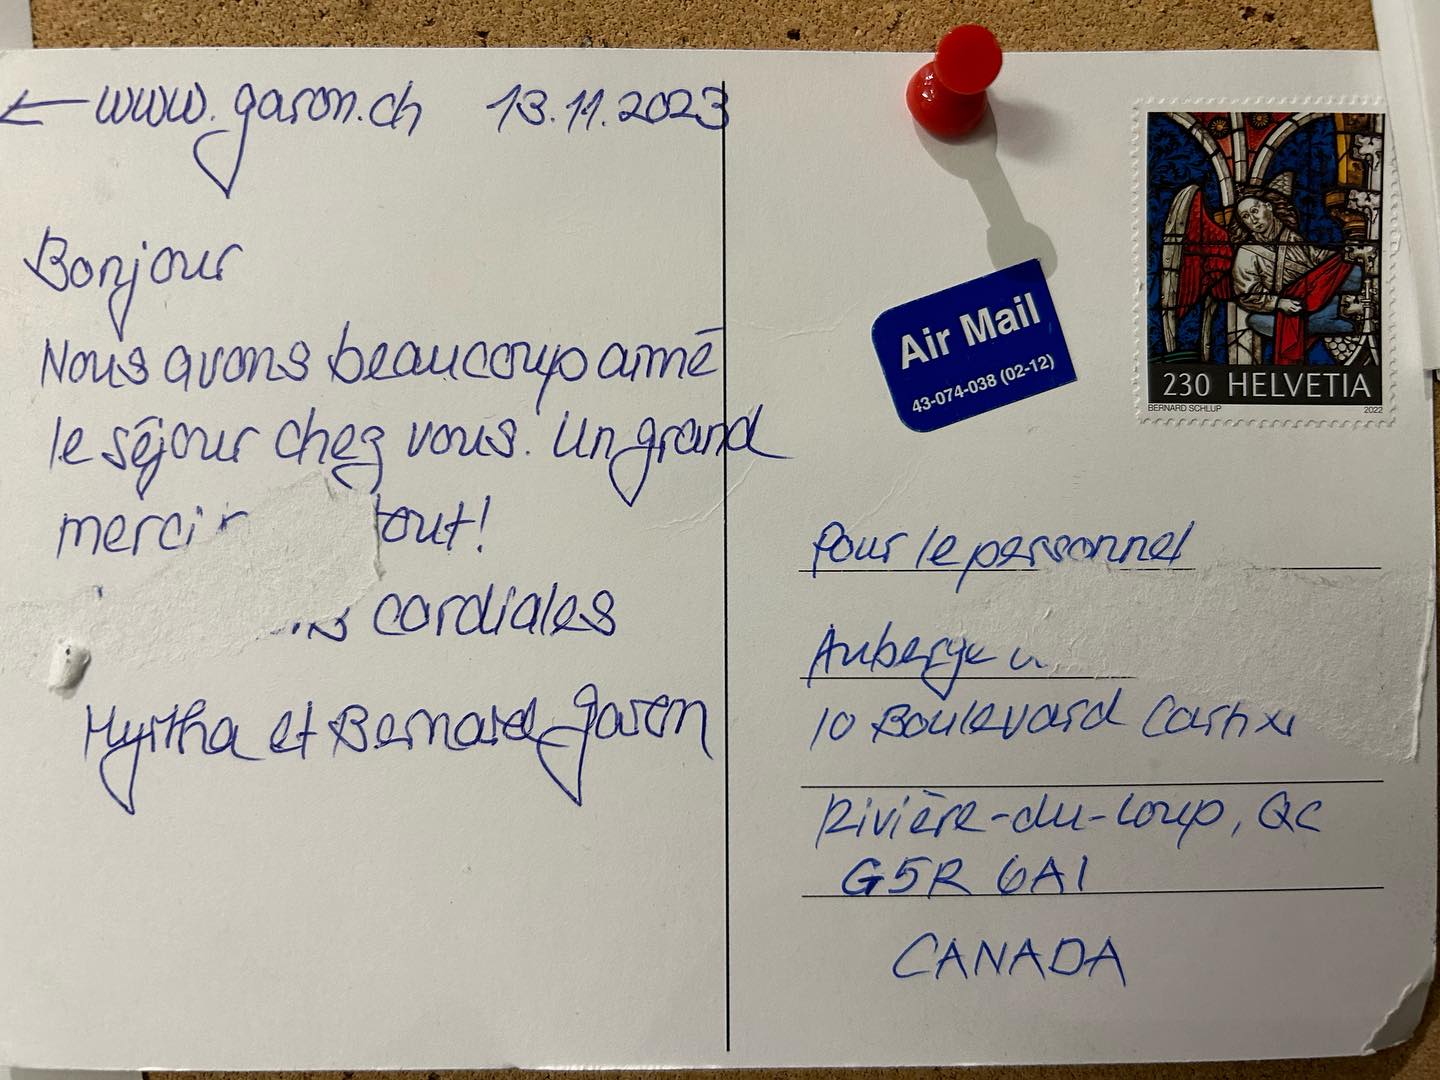 ← www.garon.ch 13.11.2023
Bonjour
Nous avons beaucoup aimé
le séjour chez vous. Un grand
merci tout!
cordiales
Myrtha et Bernard garon
Air Mail
43-074-038 (02-12)
230 HELVETIA
BERNARD SCHLUP 2022
Pour le personnel
Auberge
10 Boulevard
Rivière-du-Loup, QC
G5R 6A1
CANADA